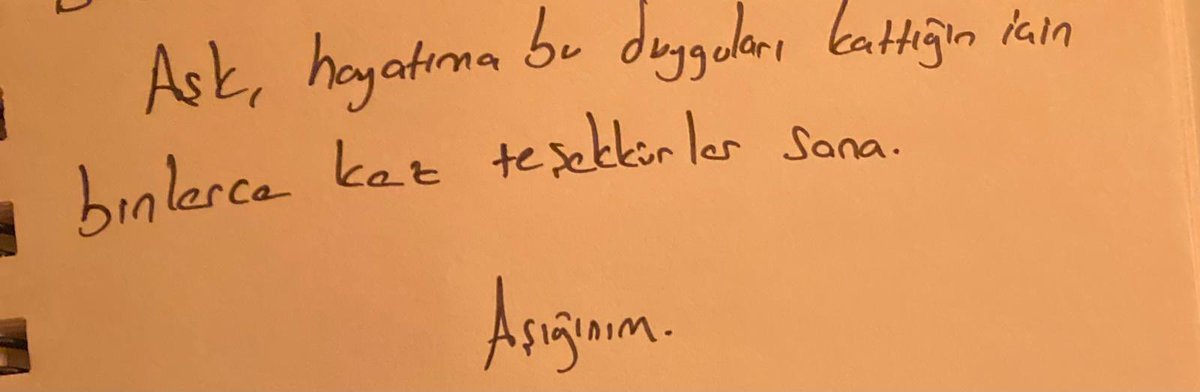 Aşk, hayatıma bu duyguları kattığın için
binlerce kez teşekkürler sana.
Aşığınım.